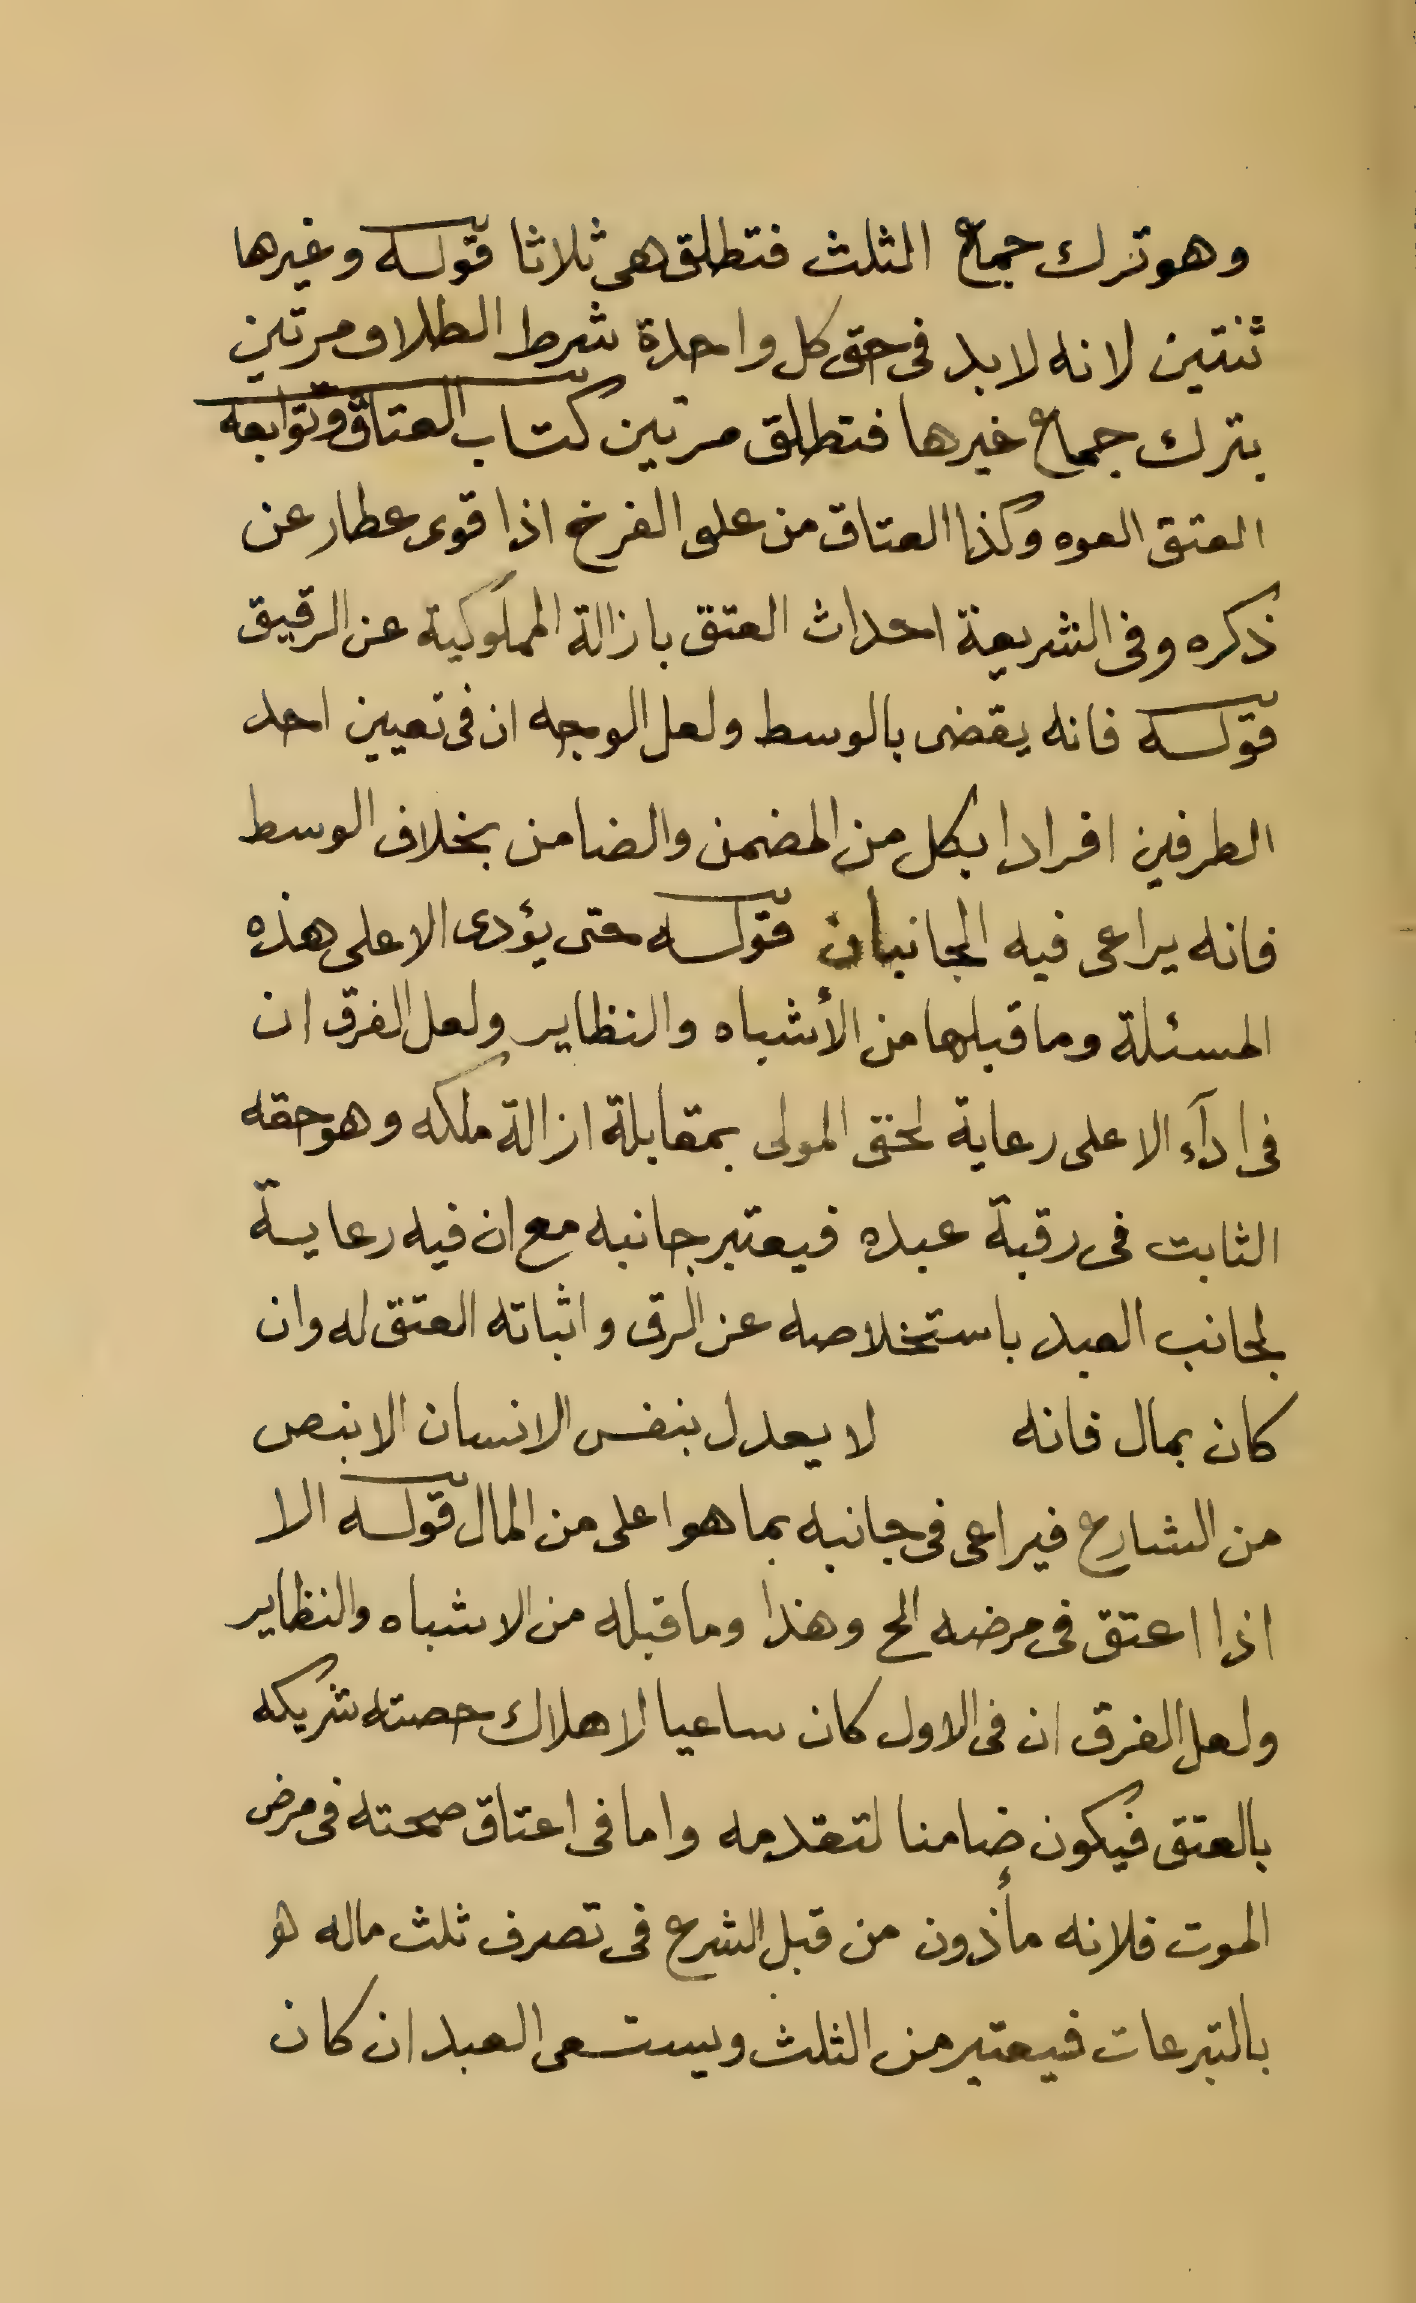 وهو ترك جماع الثلث فتطلق هى ثلاثا قوله وغيرها
ثنتين لانه لا بد فى حق كل واحدة شرط الطلاق مرتين
بترك جماع غيرها فتطلق مرتين كتاب العتاق وتوابعه
العتق القوه وكذا العتاق من على الفرخ اذا قوى عطار عن
ذكره وفى الشريعة احداث العتق بازالة المملوكية عن الرقيق
قوله فانه يقضى بالوسط ولعل الوجه ان فى تعيين احد
الطرفين افرادا بكل من المضمن والضامن بخلاف الوسط
فانه يراعى فيه الجانبان قوله حتى يؤدى الاعلى هذه
المسئلة وما قبلها من الأشباه والنظاير ولعل الفرق ان
فى ادآء الاعلى رعاية لحق المولى بمقابلة ازالة ملكه وهو حقه
الثابت فى رقبة عبده فيعتبر جانبه مع ان فيه رعاية
لجانب العبد باستخلاصه عن الرق واثباته العتق له وان
كان بمال فانه لا يعدل بنفس الانسان الا بنص
من الشارع فيراعى فى جانبه بما هو اعلى من المال قوله الا
اذا اعتق فى مرضه الخ وهذا وما قبله من الاشباه والنظاير
ولعل الفرق ان فى الاول كان ساعيا لاهلاك حصته شريكه
بالعتق فيكون ضامنا لتقدمه واما فى اعتاق صحته فى مرض
الموت فلانه مأذون من قبل الشرع فى تصرف ثلث ماله هو
بالتبرعات فيعتبر من الثلث ويستسعى العبد ان كان